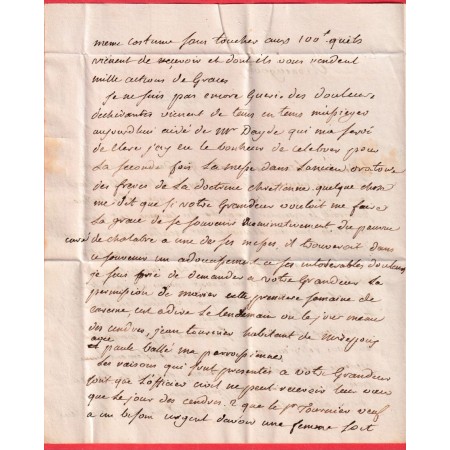 meme costume sans toucher aux 100# qu'ils
vienent de recevoir et dont ils vous rendent
mille actions de Graces
Je ne suis pas encore Gueri des douleurs
dechirantes vienent de tems en tems
aujourdhui aidé de Mr Dayde qui ma servi
de clerc j'ay eu le bonheur de celebrer pour
la seconde fois la messe dans l'ancien oratoire
des freres de la doctrine chretienne quelque chose
me dit que si votre Grandeur vouloit me faire
la grace de se souvenir du pauvre
curé de chalabre a une de ses messes, il trouveroit dans
ce souvenir un adoucissement a ses intolerables douleurs
je suis prié de demander a votre Grandeur la
permission de marier cette premiere semaine de
careme est adire le lendemain ou le jour meme
des cendres, jean tournier habitant de mirepoix
avec paule vallé ma paroissienne
les raisons qui sont presentés a votre Grandeur
sont que l'officier civil ne peut recevoir leur voeu
que le jour des cendres. 2 que le Sr Tournier veuf
a un besoin urgent d'avoir une femme soit